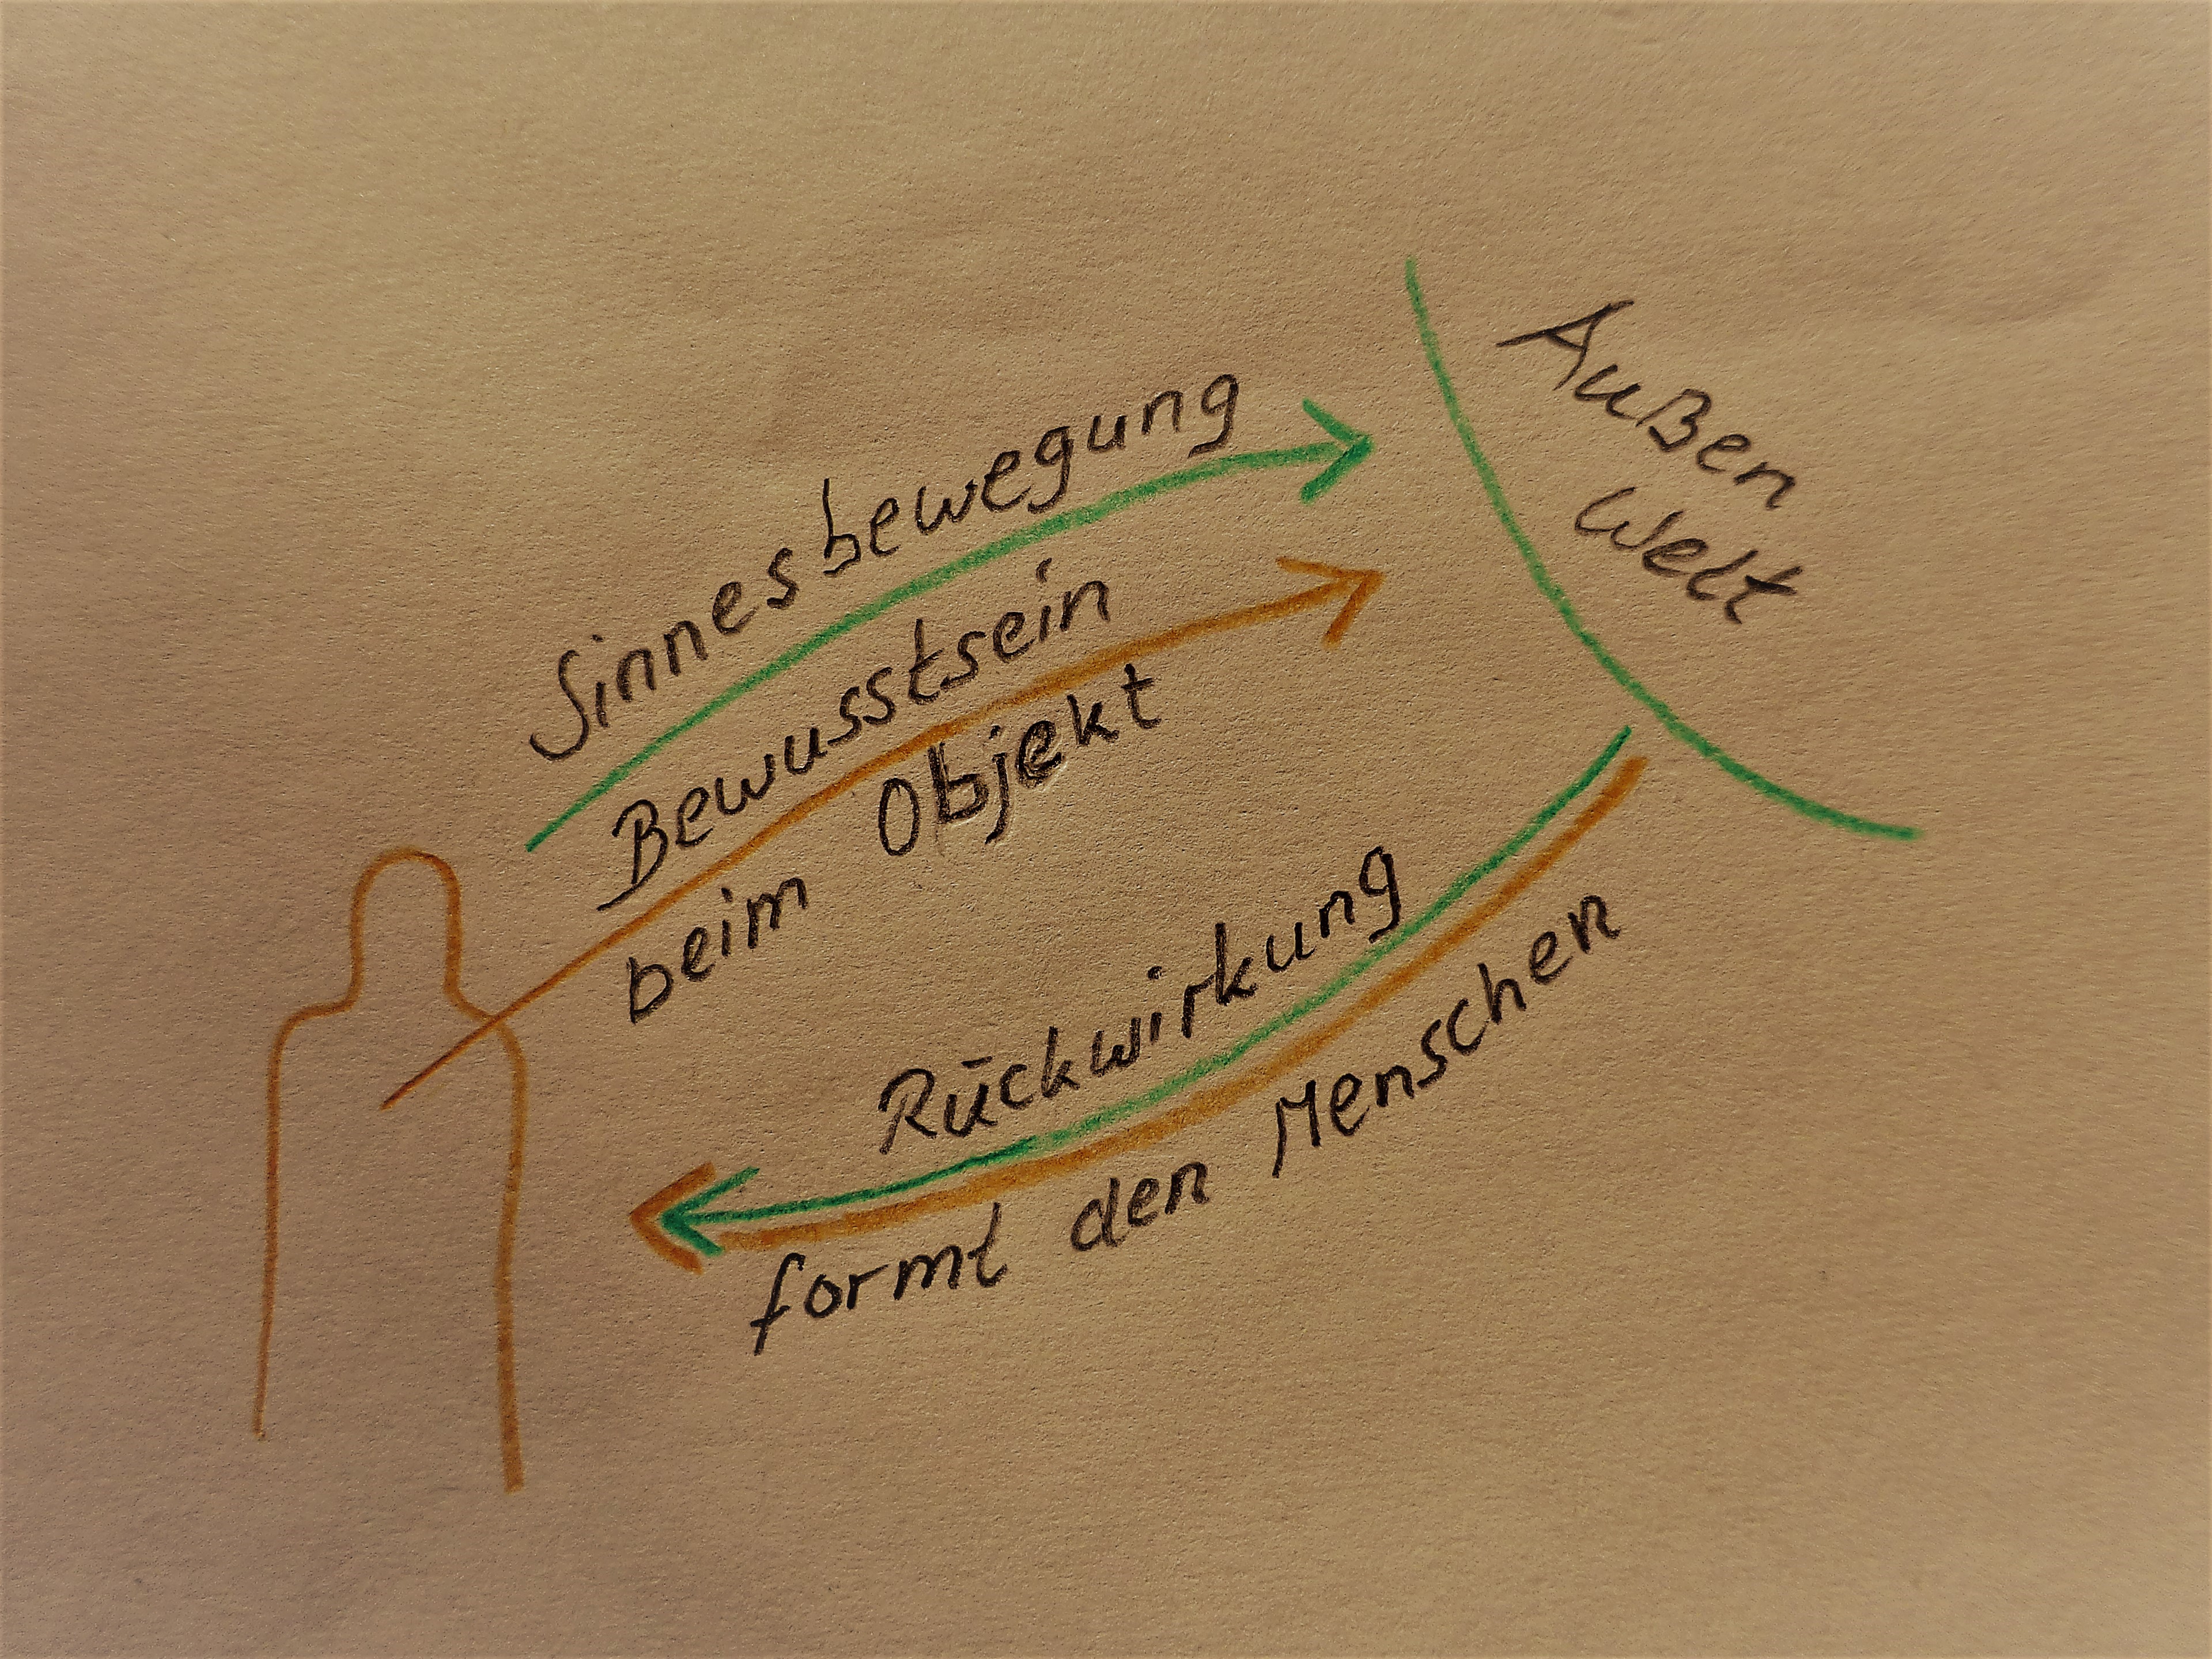 Sinnesbewegung
Bewusstsein
beim Objekt
Außen
Welt
Rückwirkung
formt den Menschen